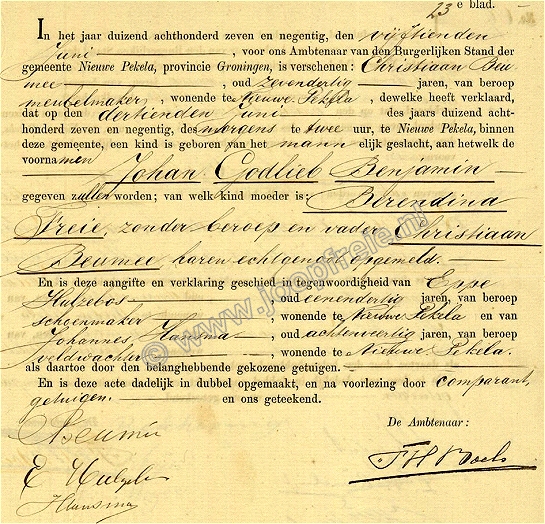 23 e blad.
In het jaar duizend achthonderd zeven en negentig, den vijftienden
Juni, voor ons Ambtenaar van den Burgerlijken Stand der
gemeente Nieuwe Pekela, provincie Groningen, is verschenen: Christiaan Beu-
mee, oud zevendertig jaren, van beroep
meubelmaker, wonende te Nieuwe Pekela, dewelke heeft verklaard,
dat op den dertienden Juni des jaars duizend acht-
honderd zeven en negentig, des morgens te twee uur, te Nieuwe Pekela, binnen
deze gemeente, een kind is geboren van het mannelijk geslacht, aan hetwelk de
voornamen
Johan Godlieb Benjamin
gegeven zullen worden; van welk kind moeder is: Berendina
Freie, zonder beroep en vader Christiaan
Beumee, haren echtgenoot opgemeld.
En is deze aangifte en verklaring geschied in tegenwoordigheid van Eppe
Hulzebos, oud eenendertig jaren, van beroep
schoenmaker, wonende te Nieuwe Pekela en van
Johannes Hansma, oud achtenveertig jaren, van beroep
veldwachter, wonende te Nieuwe Pekela.
als daartoe door den belanghebbende gekozene getuigen.
En is deze acte dadelijk in dubbel opgemaakt, en na voorlezing door comparant,
getuigen. en ons geteekend.
De Ambtenaar:
Beumée
E Hulzebos
JHansma
© www.joopfreie.nl